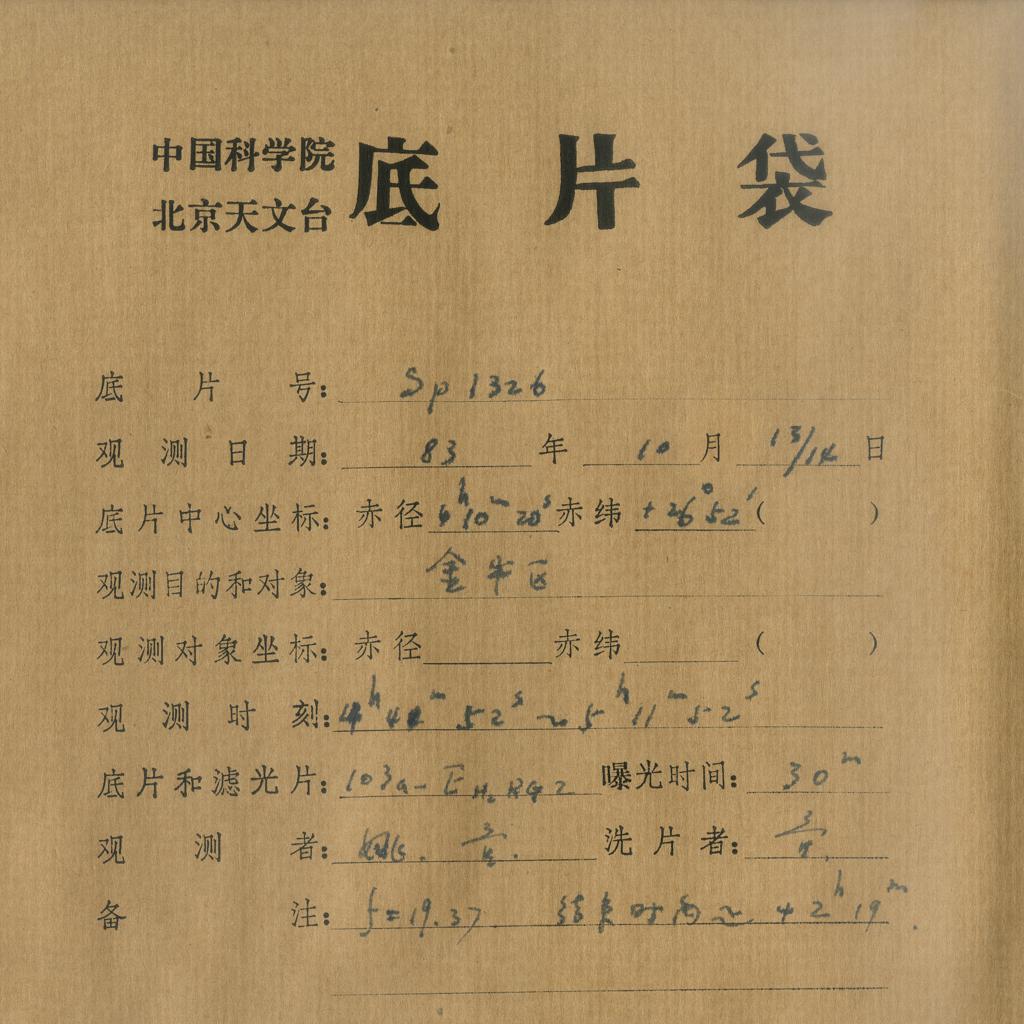 中国科学院
北京天文台
底片袋
底片号：Sp 1326
观测日期：83年10月13/14日
底片中心坐标：赤径4h10m20s赤纬+26°52′（ ）
观测目的和对象：金牛区
观测对象坐标：赤径 赤纬 （ ）
观测时刻：4h44m52s~5h11m52s
底片和滤光片：103a-E H2 RG2 曝光时间：30m
观测者：姚. 洗片者：
备注：f=19.37 结束时 2h19m.